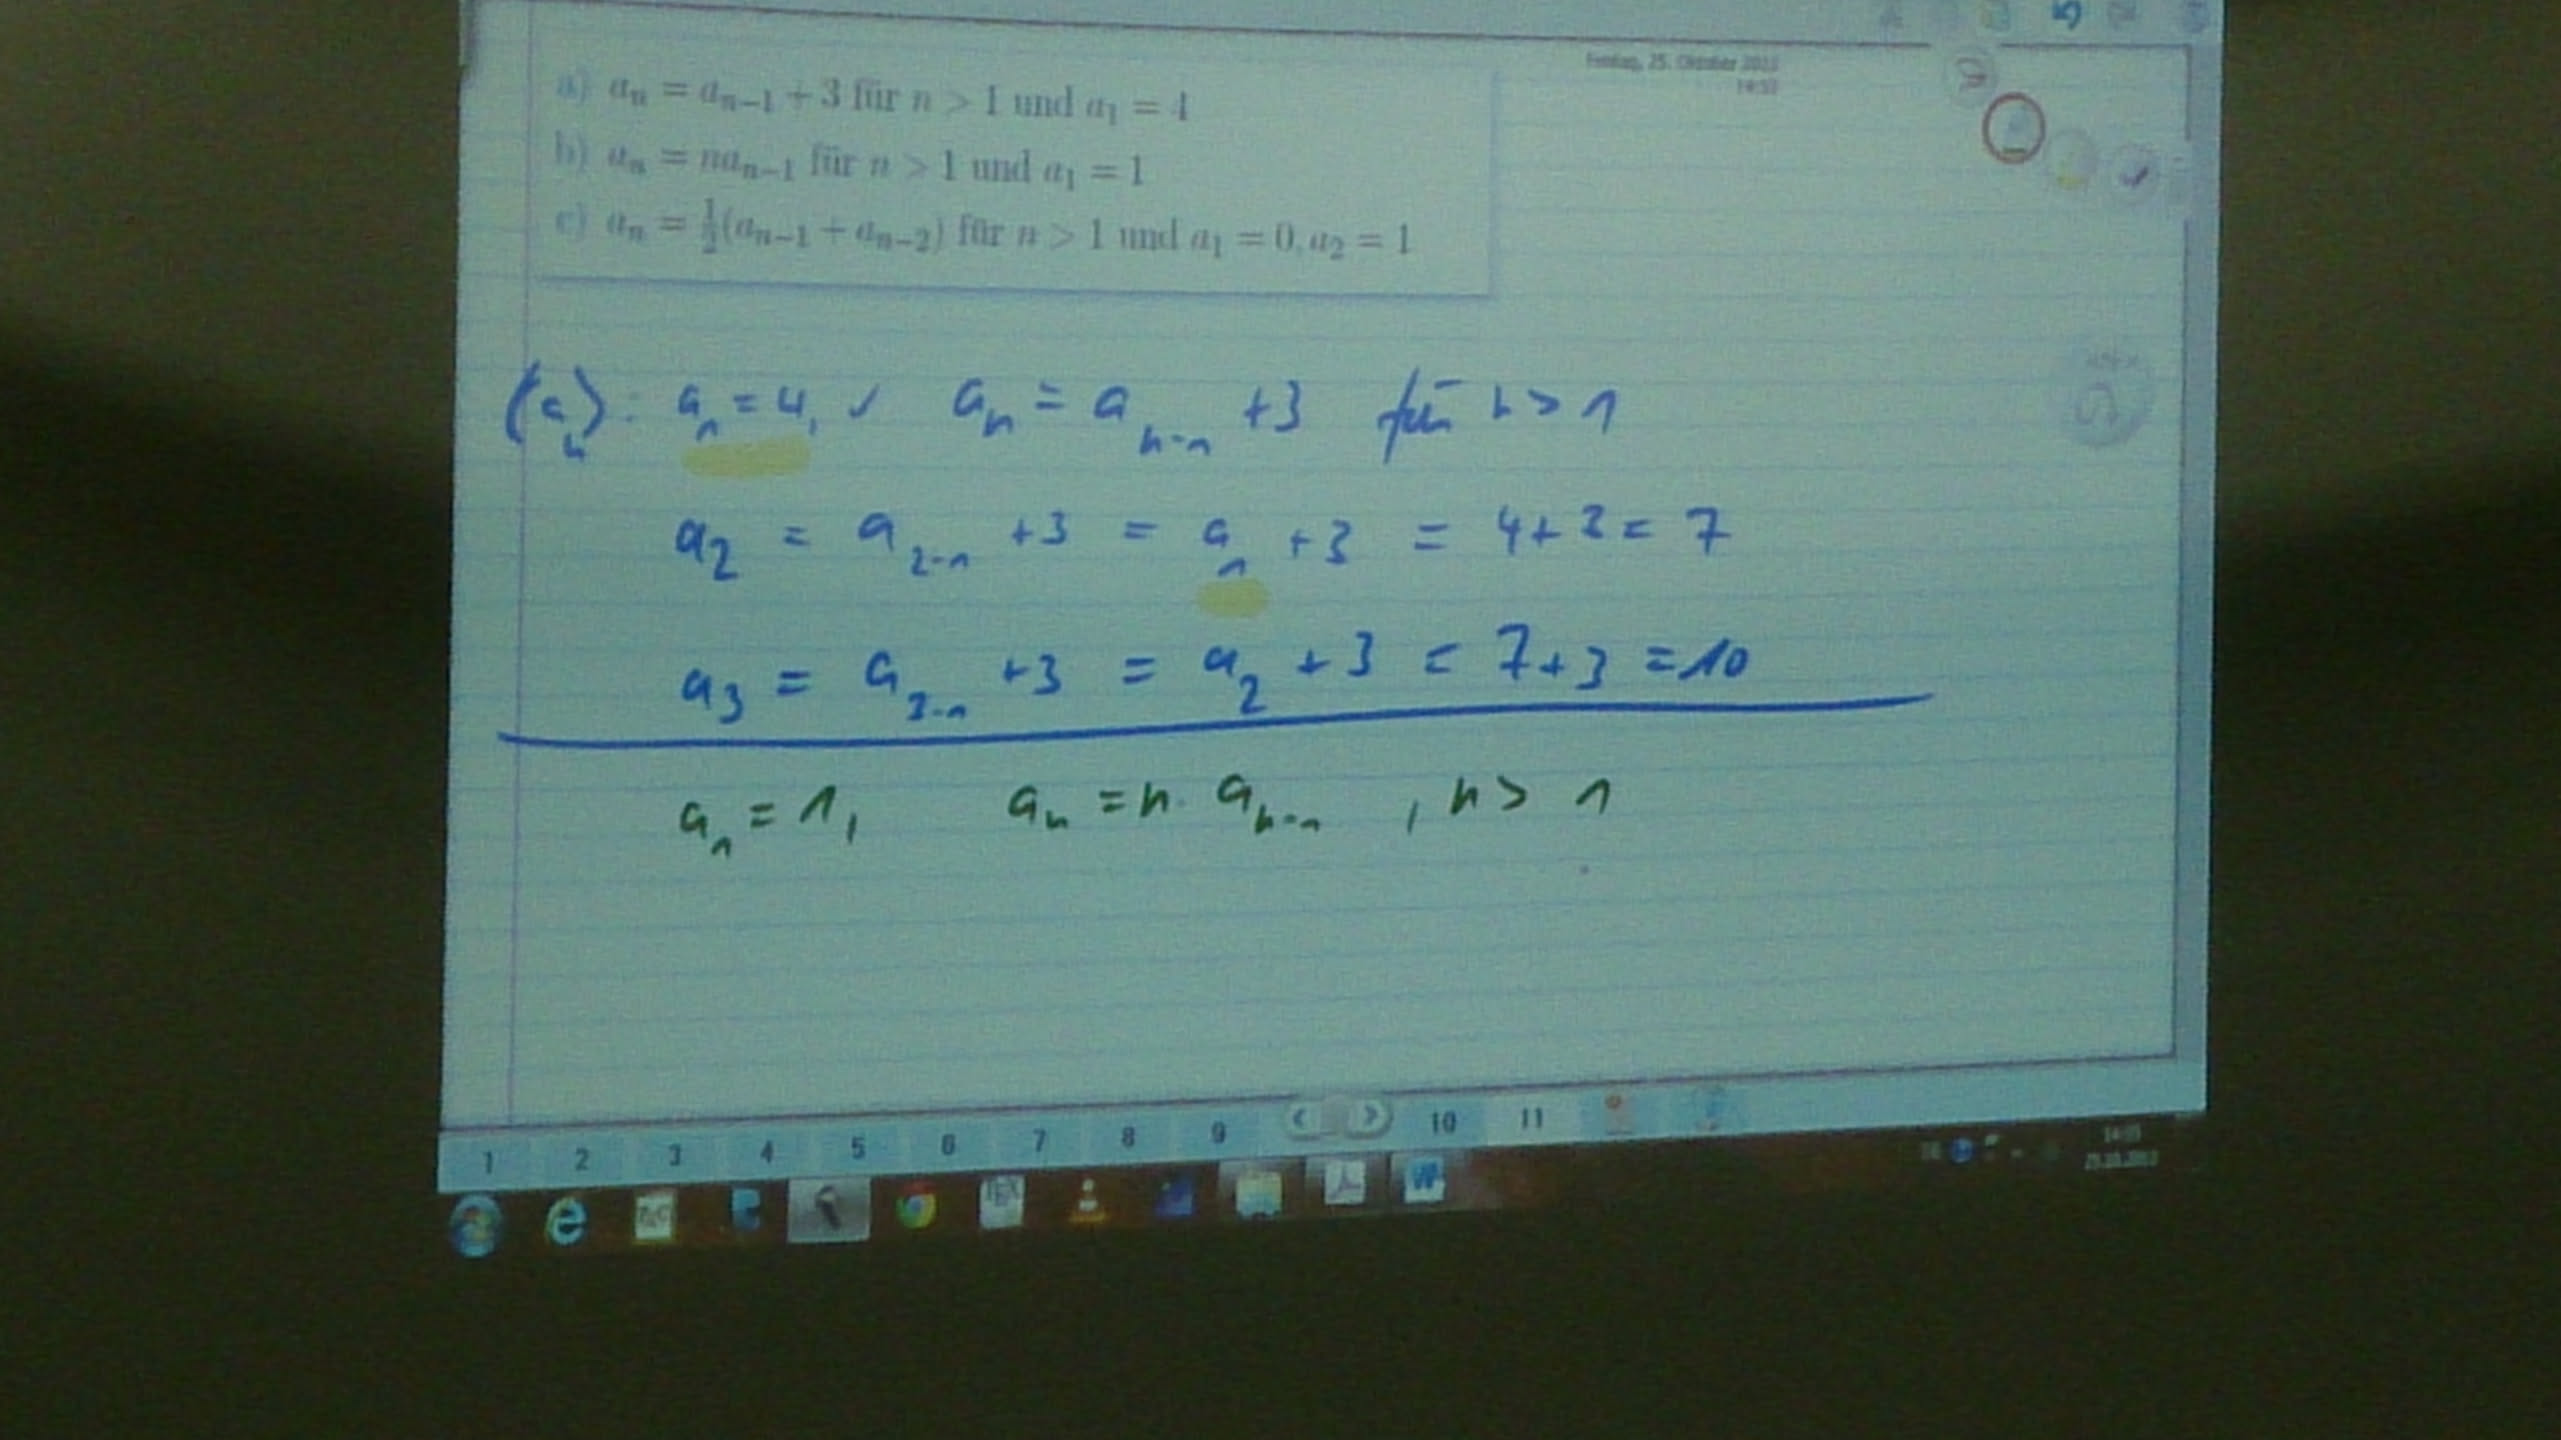 Freitag, 25. Oktober
a) aₙ = aₙ₋₁ + 3 für n > 1 und a₁ = 4
b) aₙ = naₙ₋₁ für n > 1 und a₁ = 1
c) aₙ = ½(aₙ₋₁ + aₙ₋₂) für n > 1 und a₁ = 0, a₂ = 1
(aₙ): a₁ = 4, ✓ aₙ = aₙ₋₁ + 3 für n > 1
a₂ = a₂₋₁ + 3 = a₁ + 3 = 4 + 3 = 7
a₃ = a₃₋₁ + 3 = a₂ + 3 = 7 + 3 = 10
a₁ = 1, aₙ = n · aₙ₋₁ , n > 1
1 2 3 4 5 6 7 8 9 < > 10 11